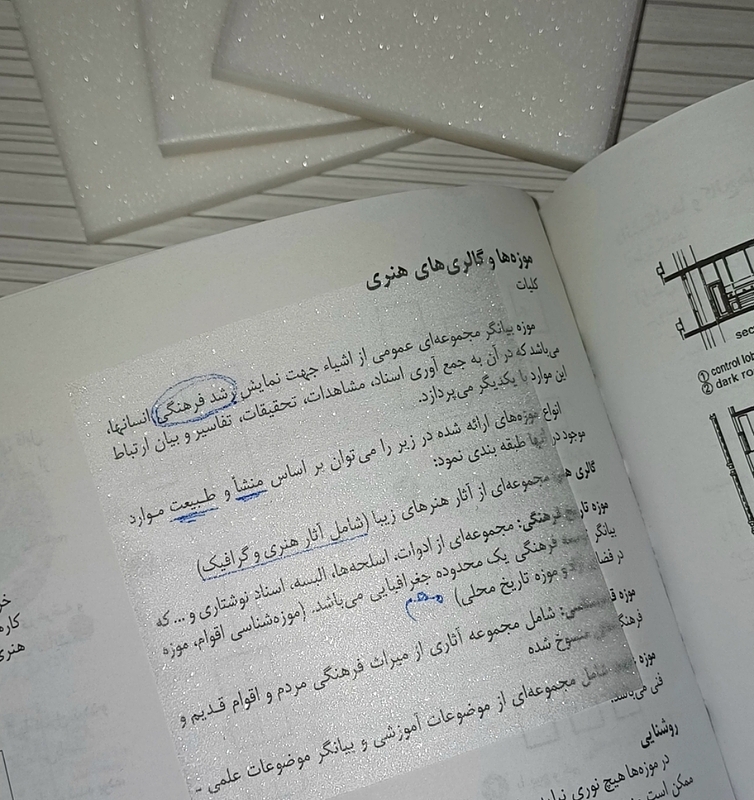 موزه‌ها و گالری‌های هنری
کلیات
موزه بیانگر مجموعه‌ای عمومی از اشیاء جهت نمایش (رشد فرهنگی) انسانها،
می‌باشد که در آن به جمع آوری اسناد، مشاهدات، تحقیقات، تفاسیر و بیان ارتباط
این موارد با یکدیگر می‌پردازد.
انواع موزه‌های ارائه شده در زیر را می‌توان بر اساس منشأ و طبیعت موارد
موجود در آنها طبقه بندی نمود:
گالری مجموعه‌ای از آثار هنرهای زیبا (شامل آثار هنری و گرافیک)
موزه تاریخ فرهنگی: مجموعه‌ای از ادوات، اسلحه‌ها، البسه، اسناد نوشتاری و ... که
بیانگر فرهنگی یک محدوده جغرافیایی می‌باشد. (موزه‌شناسی اقوام، موزه
در و موزه تاریخ محلی) مهم
موزه شامل مجموعه آثاری از میراث فرهنگی مردم و اقوام قدیم و
منسوخ شده
موزه شامل مجموعه‌ای از موضوعات آموزشی و بیانگر موضوعات علمی -
فنی می‌باشد.
روشنایی
در موزه‌ها هیچ نوری
ممکن است
sec
① control lob
② dark ro
خر
کاره
هنری